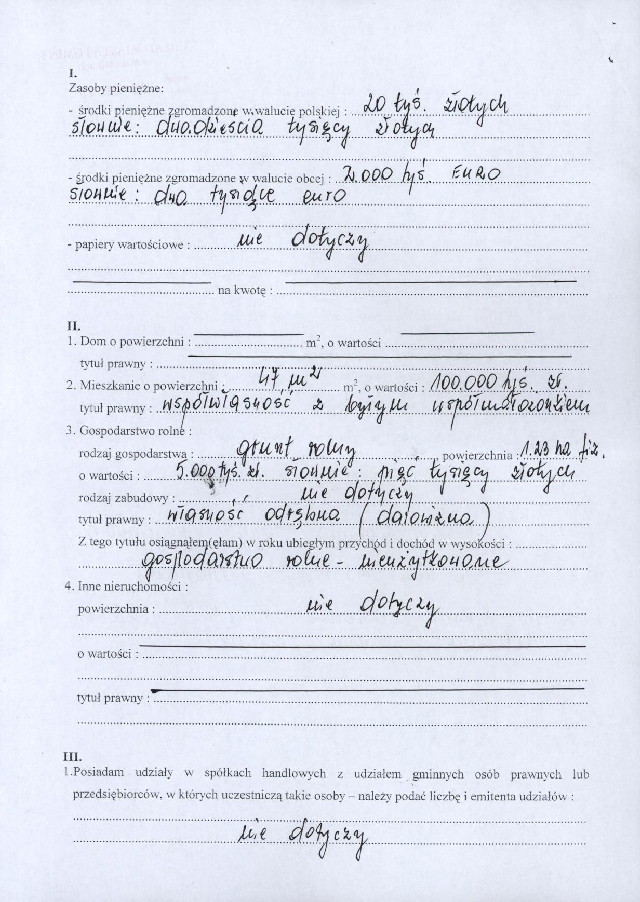 I.
Zasoby pieniężne:
- środki pieniężne zgromadzone w walucie polskiej : 20 tyś. złotych
słownie: dwadzieścia tysięcy złotych
- środki pieniężne zgromadzone w walucie obcej : 2.000 tyś EURO
słownie : dwa tysiące euro
- papiery wartościowe : nie dotyczy
na kwotę :
II.
1. Dom o powierzchni : m², o wartości
tytuł prawny :
2. Mieszkanie o powierzchni : 47 m² m², o wartości : 100.000 tyś. zł.
tytuł prawny : współwłasność z byłym współmałżonkiem
3. Gospodarstwo rolne :
rodzaj gospodarstwa : grunt rolny , powierzchnia : 1.23 ha fiz.
o wartości : 5.000 tyś. zł. słownie : pięć tysięcy złotych
rodzaj zabudowy : nie dotyczy
tytuł prawny : własność odrębna (darowizna)
Z tego tytułu osiągnąłem(ęłam) w roku ubiegłym przychód i dochód w wysokości :
gospodarstwo rolne - nieużytkowane
4. Inne nieruchomości :
powierzchnia : nie dotyczy
o wartości :
tytuł prawny :
III.
1.Posiadam udziały w spółkach handlowych z udziałem gminnych osób prawnych lub
przedsiębiorców, w których uczestniczą takie osoby – należy podać liczbę i emitenta udziałów :
nie dotyczy